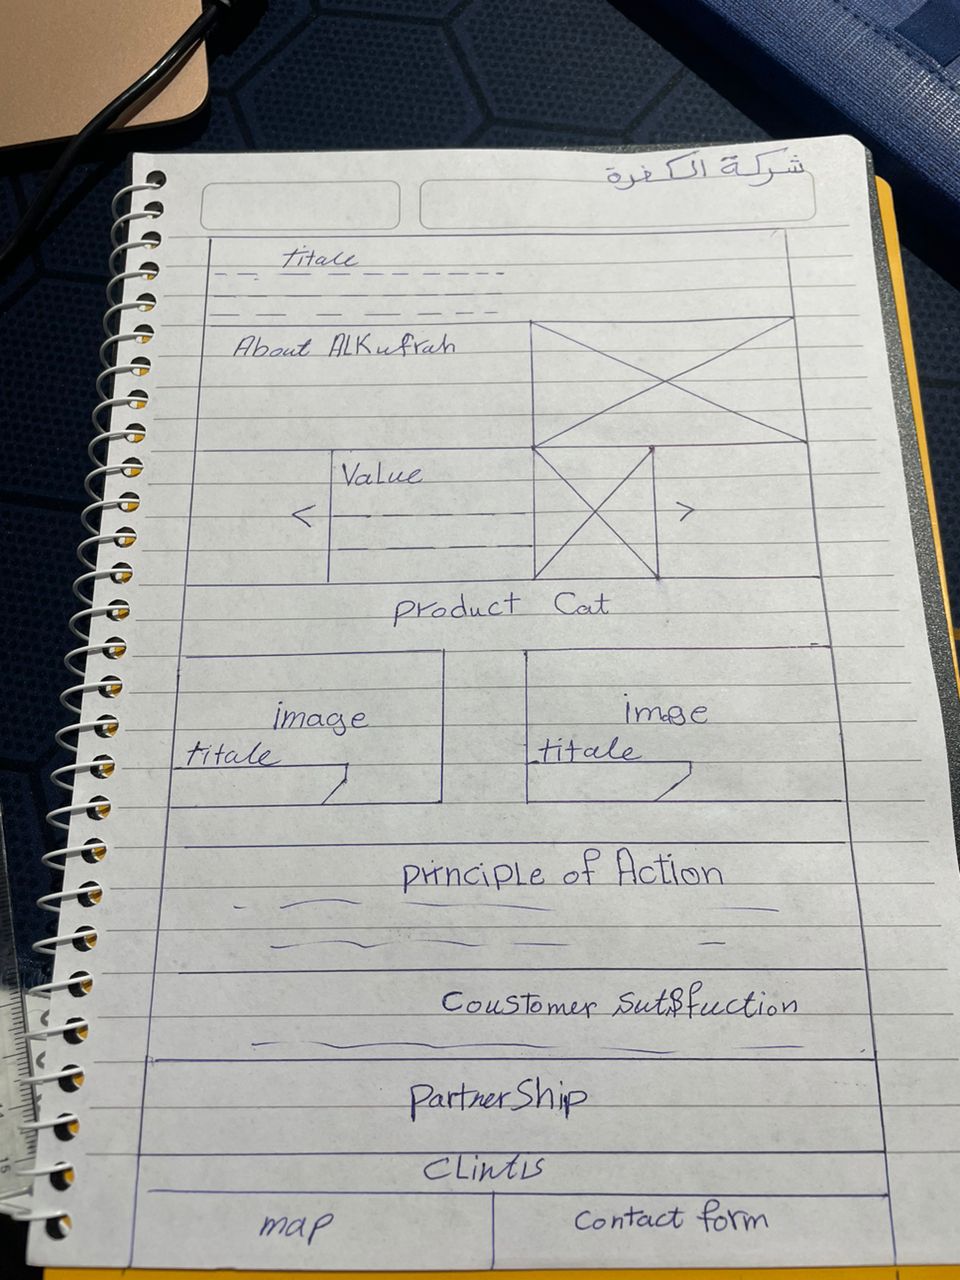 شركة الكفرة
titale
About ALKufrah
Value
< >
Product Cat
image imge
titale titale
Principle of Action
Coustomer Sutsfuction
Partner Ship
Clintis
map Contact form